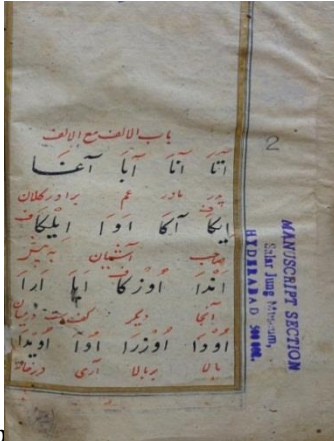 باب الالف مع الالف
2
آتَا آنَا آبَا آغَا
پدر مادر عم برادر کلان
اِیکَا آکَا اَوَا ایلکَا
آشیان
اَندَا اُوزکَا اَپَا اَرَا
آنجا دیگر میان
اُوودَا اُوزرَا اُوَا اُویدَا
بالا بربالا آری درخانه
MANUSCRIPT SECTION
Salar Jung Museum,
HYDERABAD 500 002.